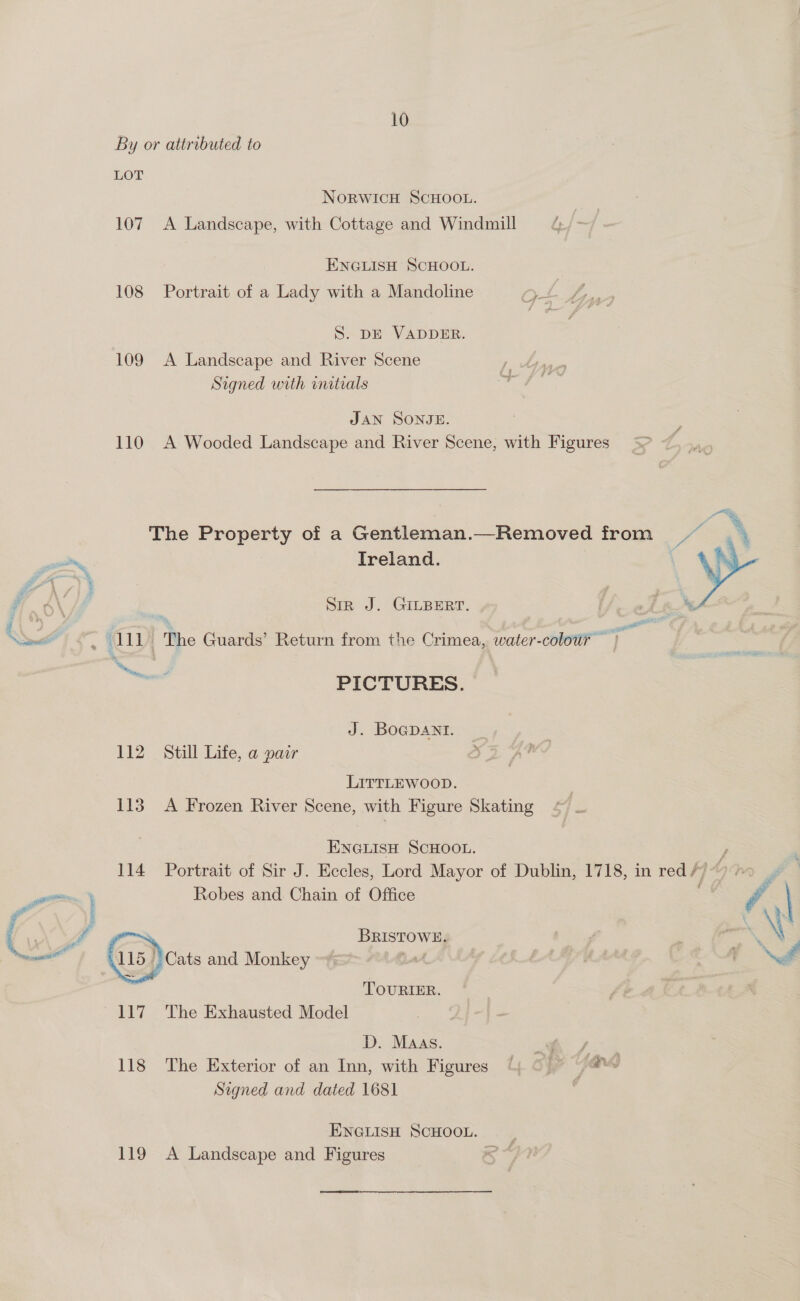 10
By or attributed to
LOT
NORWICH SCHOOL.
107 A Landscape, with Cottage and Windmill
ENGLISH SCHOOL.
108 Portrait of a Lady with a Mandoline
S. DE VADDER.
109 A Landscape and River Scene
Signed with initials
JAN SONJE.
110 A Wooded Landscape and River Scene, with Figures
The Property of a Gentleman.—Removed from
Ireland.
SIR J. GILBERT.
111 The Guards' Return from the Crimea, water-colour
PICTURES.
J. BOGDANI.
112 Still Life, a pair
LITTLEWOOD.
113 A Frozen River Scene, with Figure Skating
ENGLISH SCHOOL.
114 Portrait of Sir J. Eccles, Lord Mayor of Dublin, 1718, in red
Robes and Chain of Office
BRISTOWE.
115 Cats and Monkey
TOURIER.
117 The Exhausted Model
D. MAAS.
118 The Exterior of an Inn, with Figures
Signed and dated 1681
ENGLISH SCHOOL.
119 A Landscape and Figures